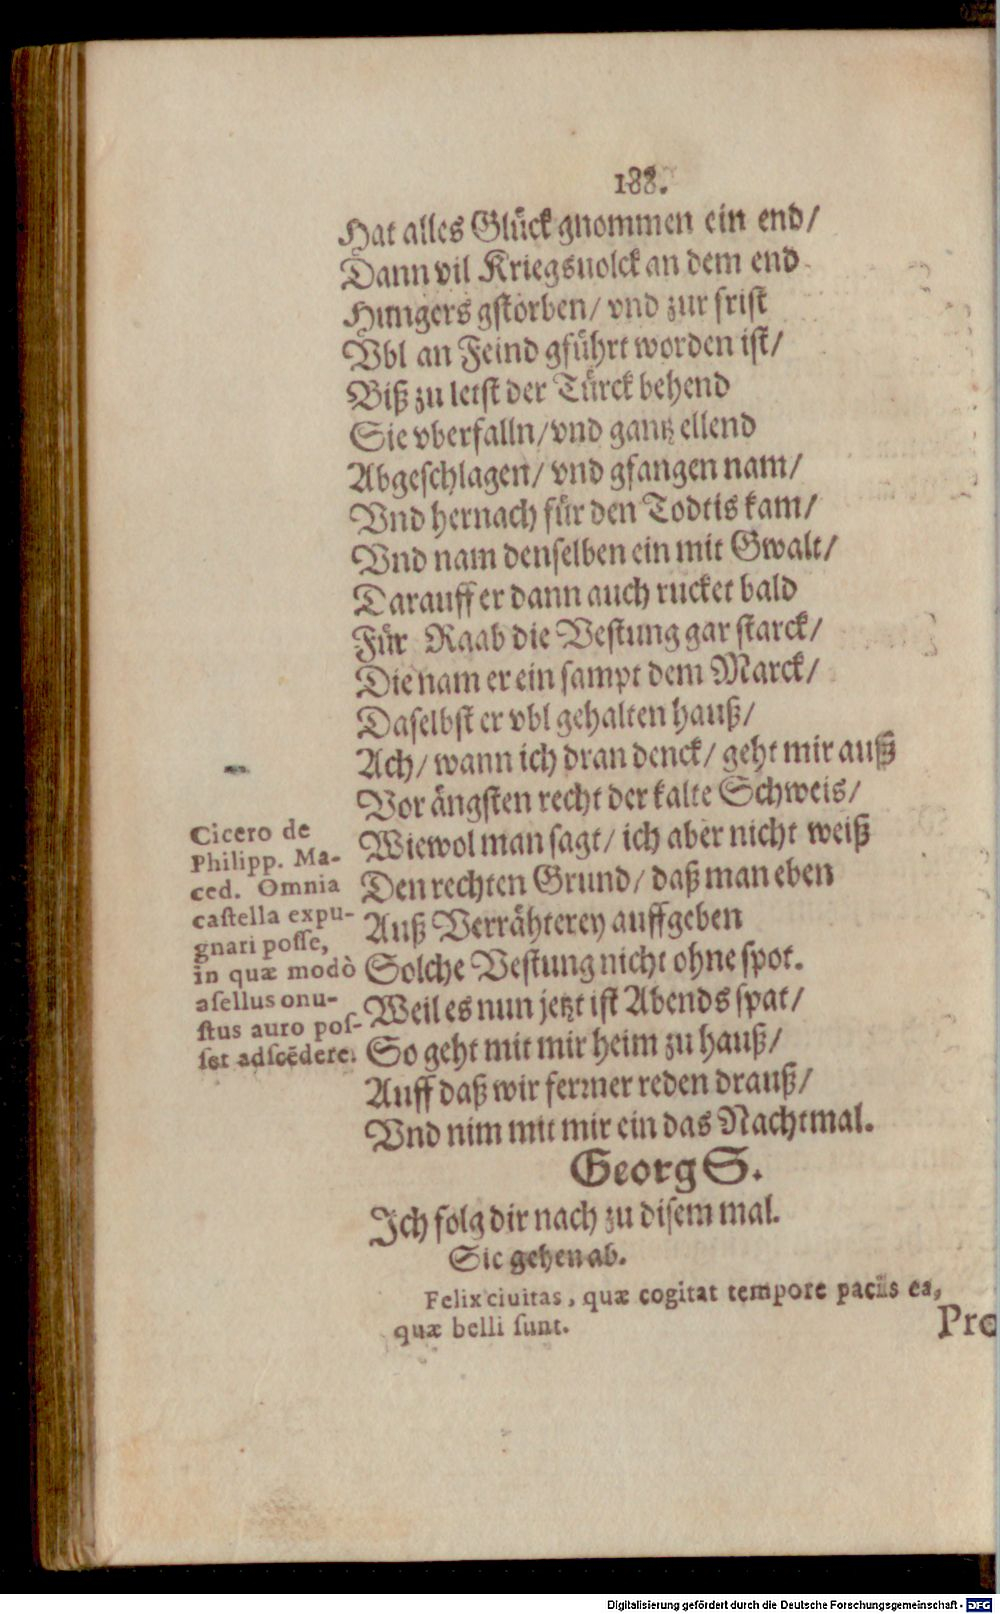 188.
Hat alles Glück gnommen ein end/
Dann vil Kriegsuolck an dem end
Hungers gstorben/ vnd zur frist
Vbl an Feind gführt worden ist/
Biß zu letst der Türck behend
Sie vberfalln/ vnd gantz ellend
Abgeschlagen/ vnd gfangen nam/
Vnd hernach für den Todtis kam/
Vnd nam denselben ein mit Gwalt/
Darauff er dann auch rucket bald
Für Raab die Vestung gar starck/
Die nam er ein sampt dem Marck/
Daselbst er vbl gehalten hauß/
Ach/ wann ich dran denck/ geht mir auß
Vor ängsten recht der kalte Schweis/
Wiewol man sagt/ ich aber nicht weiß
Den rechten Grund/ daß man eben
Auß Verrähterey auffgeben
Solche Vestung nicht ohne spot.
Weil es nun jetzt ist Abends spat/
So geht mit mir heim zu hauß/
Auff daß wir ferrner reden drauß/
Vnd nim mit mir ein das Nachtmal.
Cicero de
Philipp. Ma-
ced. Omnia
castella expu-
gnari posse,
in quæ modò
asellus onu-
stus auro pos-
set adscēdere.
Georg S.
Ich folg dir nach zu disem mal.
Sie gehen ab.
Felix ciuitas, quæ cogitat tempore paciis ea,
quæ belli sunt.
Pro
Digitalisierung gefördert durch die Deutsche Forschungsgemeinschaft - DFG